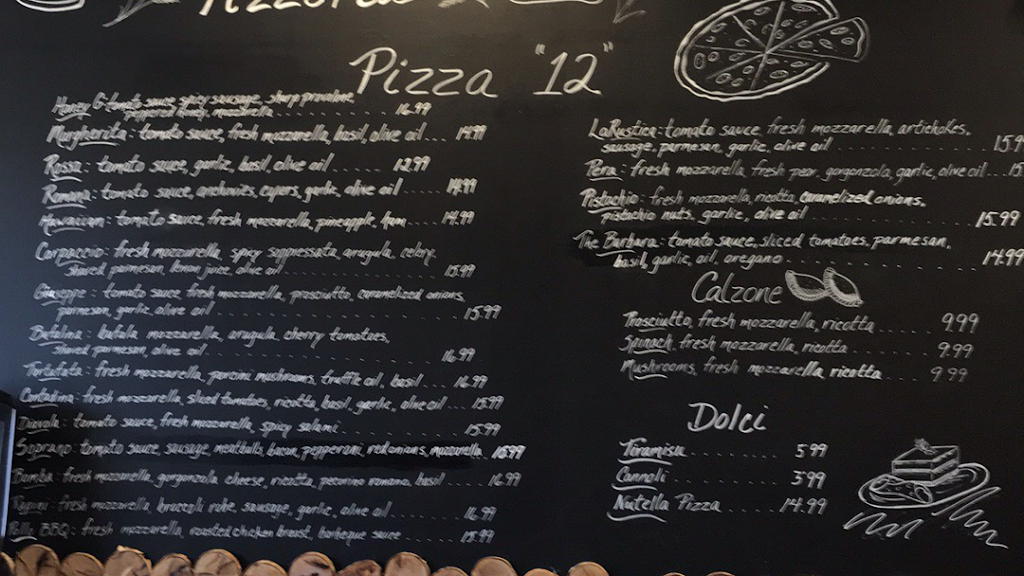 Pizza "12"
Honey G: tomato sauce, spicy sausage, sharp provolone
peppered honey, mozzarella 16.99
Margherita: tomato sauce, fresh mozzarella, basil, olive oil... 14.99
Rossa: tomato sauce, garlic, basil, olive oil...... 12.99
Romana: tomato sauce, anchovies, capers, garlic, olive oil ..... 14.99
Hawaiian: tomato sauce, fresh mozzarella, pineapple, ham .... 14.99
Carpaccio: fresh mozzarella, spicy soppressata, arugula, celery,
shaved parmesan, lemon juice, olive oil 15.99
Giuseppe: tomato sauce, fresh mozzarella, prosciutto, caramelized onions,
parmesan, garlic, olive oil 15.99
Bufalina: bufala mozzarella, arugula, cherry tomatoes,
shaved parmesan, olive oil 16.99
Tartufata: fresh mozzarella, porcini mushrooms, truffle oil, basil... 16.99
fresh mozzarella, sliced tomatoes, ricotta, basil, garlic, olive oil ... 15.99
Diavola: tomato sauce, fresh mozzarella, spicy salami 15.99
Soprano: tomato sauce, sausage, meatballs, bacon, pepperoni, red onions, mozzarella 16.99
Bomba: fresh mozzarella, gorgonzola cheese, ricotta, pecorino romano, basil .... 16.99
Rapini: fresh mozzarella, broccoli rabe, sausage, garlic, olive oil 16.99
BBQ: fresh mozzarella, roasted chicken breast, barbeque sauce 15.99
LaRustica: tomato sauce, fresh mozzarella, artichokes,
sausage, parmesan, garlic, olive oil 15.9
Pera: fresh mozzarella, fresh pear, gorgonzola, garlic, olive oil... 15.
Pistachio: fresh mozzarella, ricotta, caramelized onions,
pistachio nuts, garlic, olive oil 15.99
The Barbara: tomato sauce, sliced tomatoes, parmesan,
basil, garlic, oil, oregano 14.99
Calzone
Prosciutto, fresh mozzarella, ricotta 9.99
Spinach, fresh mozzarella, ricotta 9.99
Mushrooms, fresh mozzarella, ricotta 9.99
Dolci
Tiramisu 5.99
Cannoli 3.99
Nutella Pizza 14.99